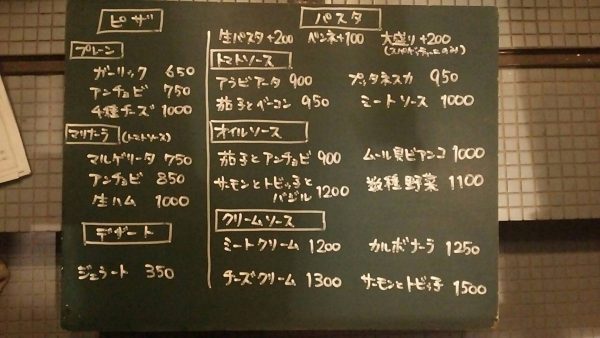 ピザ
プレーン
ガーリック 650
アンチョビ 750
4種チーズ 1000
マリナーラ (トマトソース)
マルゲリータ 750
アンチョビ 850
生ハム 1000
デザート
ジェラート 350
パスタ
生パスタ+200 ペンネ+100 大盛り+200
(スパゲッティーニのみ)
トマトソース
アラビアータ 900 プッタネスカ 950
茄子とベーコン 950 ミートソース 1000
オイルソース
茄子とアンチョビ 900 ムール貝ビアンコ 1000
サーモンとトビッ子と
バジル 1200 数種野菜 1100
クリームソース
ミートクリーム 1200 カルボナーラ 1250
チーズクリーム 1300 サーモンとトビッ子 1500